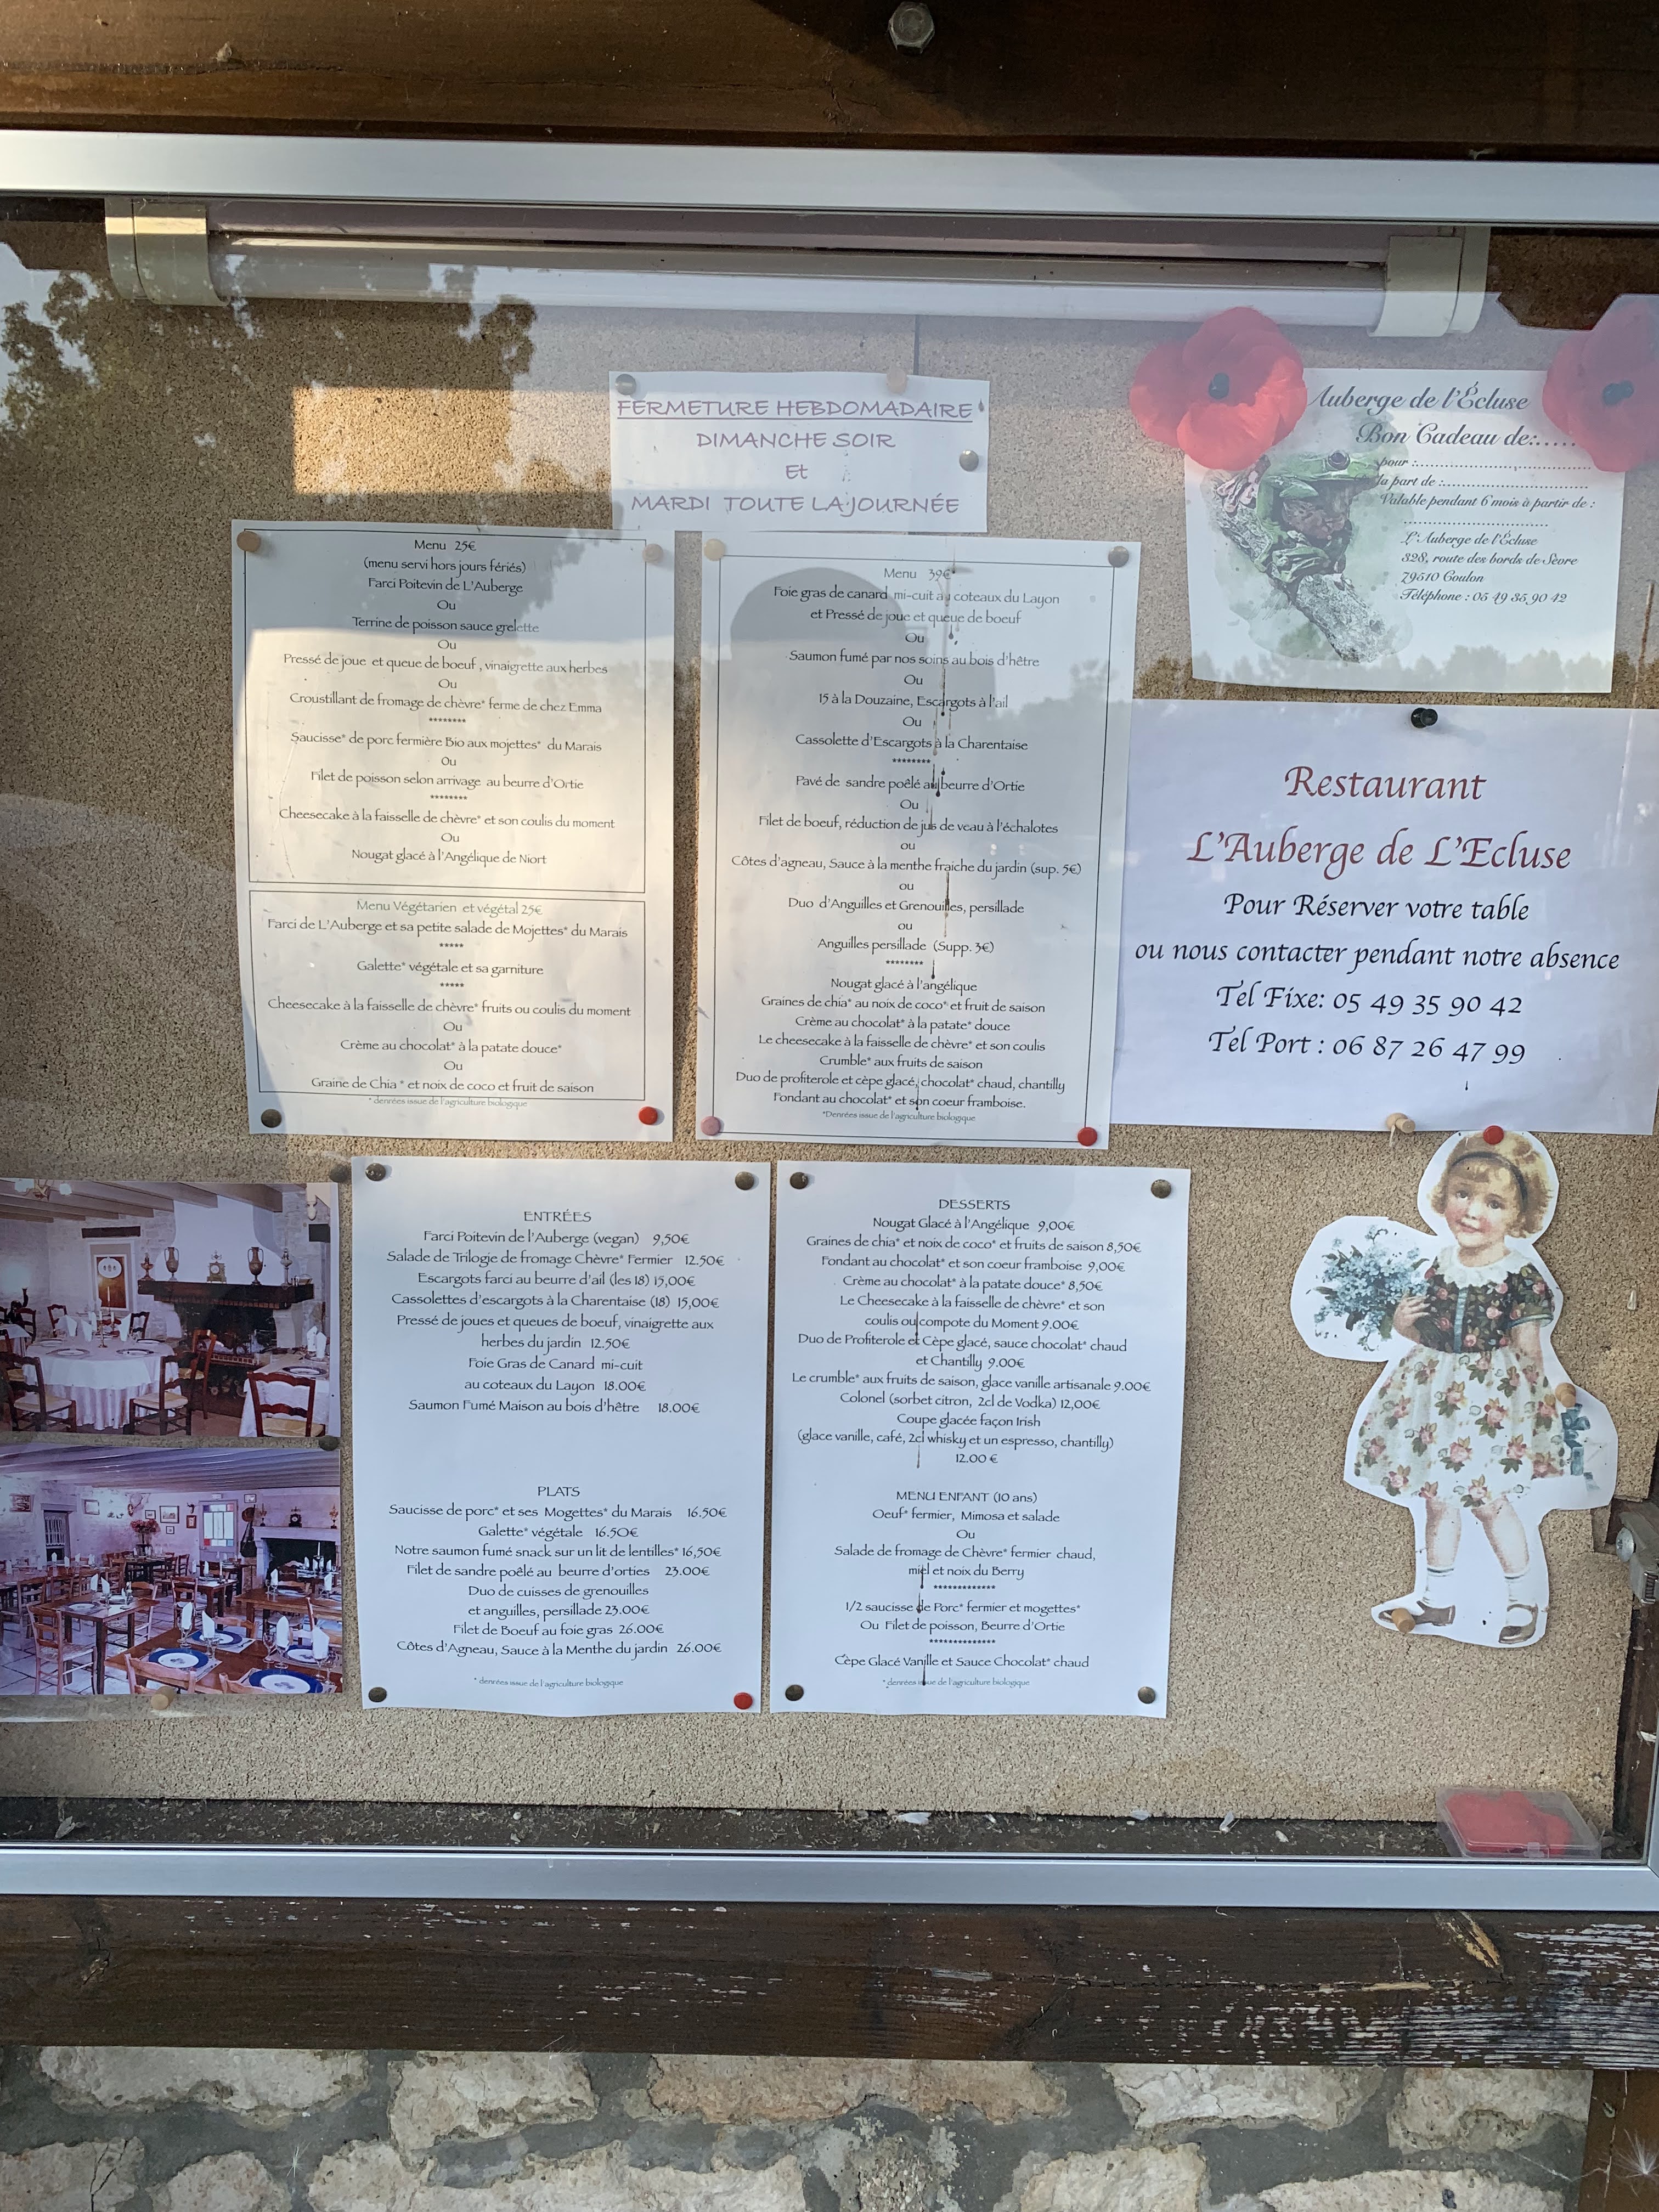 FERMETURE HEBDOMADAIRE
DIMANCHE SOIR
Et
MARDI TOUTE LA JOURNÉE
Auberge de l'Écluse
Bon Cadeau de:.....
pour :
la part de :
Valable pendant 6 mois à partir de :
L'Auberge de l'Écluse
328, route des bords de Sèvre
79510 Coulon
Téléphone : 05 49 35 90 42
Menu 25€
(menu servi hors jours fériés)
Farci Poitevin de L'Auberge
Ou
Terrine de poisson sauce grelette
Ou
Pressé de joue et queue de boeuf , vinaigrette aux herbes
Ou
Croustillant de fromage de chèvre* ferme de chez Emma
********
Saucisse* de porc fermière Bio aux mojettes* du Marais
Ou
Filet de poisson selon arrivage au beurre d'Ortie
********
Cheesecake à la faisselle de chèvre* et son coulis du moment
Ou
Nougat glacé à l'Angélique de Niort
Menu Végétarien et végétal 25€
Farci de L'Auberge et sa petite salade de Mojettes* du Marais
*****
Galette* végétale et sa garniture
*****
Cheesecake à la faisselle de chèvre* fruits ou coulis du moment
Ou
Crème au chocolat* à la patate douce*
Ou
Graine de Chia * et noix de coco et fruit de saison
* denrées issue de l'agriculture biologique
Menu 39€*
Foie gras de canard mi-cuit au coteaux du Layon
et Pressé de joue et queue de boeuf
Ou
Saumon fumé par nos soins au bois d'hêtre
Ou
15 à la Douzaine, Escargots à l'ail
Ou
Cassolette d'Escargots à la Charentaise
********
Pavé de sandre poêlé au beurre d'Ortie
Ou
Filet de boeuf, réduction de jus de veau à l'échalotes
ou
Côtes d'agneau, Sauce à la menthe fraiche du jardin (sup. 5€)
ou
Duo d'Anguilles et Grenouilles, persillade
ou
Anguilles persillade (Supp. 3€)
********
Nougat glacé à l'angélique
Graines de chia* au noix de coco* et fruit de saison
Crème au chocolat* à la patate* douce
Le cheesecake à la faisselle de chèvre* et son coulis
Crumble* aux fruits de saison
Duo de profiterole et cèpe glacé, chocolat* chaud, chantilly
Fondant au chocolat* et son coeur framboise.
*Denrées issue de l'agriculture biologique
Restaurant
L'Auberge de L'Ecluse
Pour Réserver votre table
ou nous contacter pendant notre absence
Tel Fixe: 05 49 35 90 42
Tel Port : 06 87 26 47 99
ENTRÉES
Farci Poitevin de l'Auberge (vegan) 9,50€
Salade de Trilogie de fromage Chèvre* Fermier 12.50€
Escargots farci au beurre d'ail (les 18) 15,00€
Cassolettes d'escargots à la Charentaise (18) 15,00€
Pressé de joues et queues de boeuf, vinaigrette aux
herbes du jardin 12.50€
Foie Gras de Canard mi-cuit
au coteaux du Layon 18.00€
Saumon Fumé Maison au bois d'hêtre 18.00€
PLATS
Saucisse de porc* et ses Mogettes* du Marais 16.50€
Galette* végétale 16.50€
Notre saumon fumé snack sur un lit de lentilles* 16,50€
Filet de sandre poêlé au beurre d'orties 23.00€
Duo de cuisses de grenouilles
et anguilles, persillade 23.00€
Filet de Boeuf au foie gras 26.00€
Côtes d'Agneau, Sauce à la Menthe du jardin 26.00€
* denrées issue de l'agriculture biologique
DESSERTS
Nougat Glacé à l'Angélique 9,00€
Graines de chia* et noix de coco* et fruits de saison 8,50€
Fondant au chocolat* et son coeur framboise 9,00€
Crème au chocolat* à la patate douce* 8,50€
Le Cheesecake à la faisselle de chèvre* et son
coulis ou compote du Moment 9.00€
Duo de Profiterole et Cèpe glacé, sauce chocolat* chaud
et Chantilly 9.00€
Le crumble* aux fruits de saison, glace vanille artisanale 9.00€
Colonel (sorbet citron, 2cl de Vodka) 12,00€
Coupe glacée façon Irish
(glace vanille, café, 2cl whisky et un espresso, chantilly)
12.00 €
MENU ENFANT (10 ans)
Oeuf* fermier, Mimosa et salade
Ou
Salade de fromage de Chèvre* fermier chaud,
miel et noix du Berry
*************
1/2 saucisse de Porc* fermier et mogettes*
Ou Filet de poisson, Beurre d'Ortie
**************
Cèpe Glacé Vanille et Sauce Chocolat* chaud
* denrées issue de l'agriculture biologique